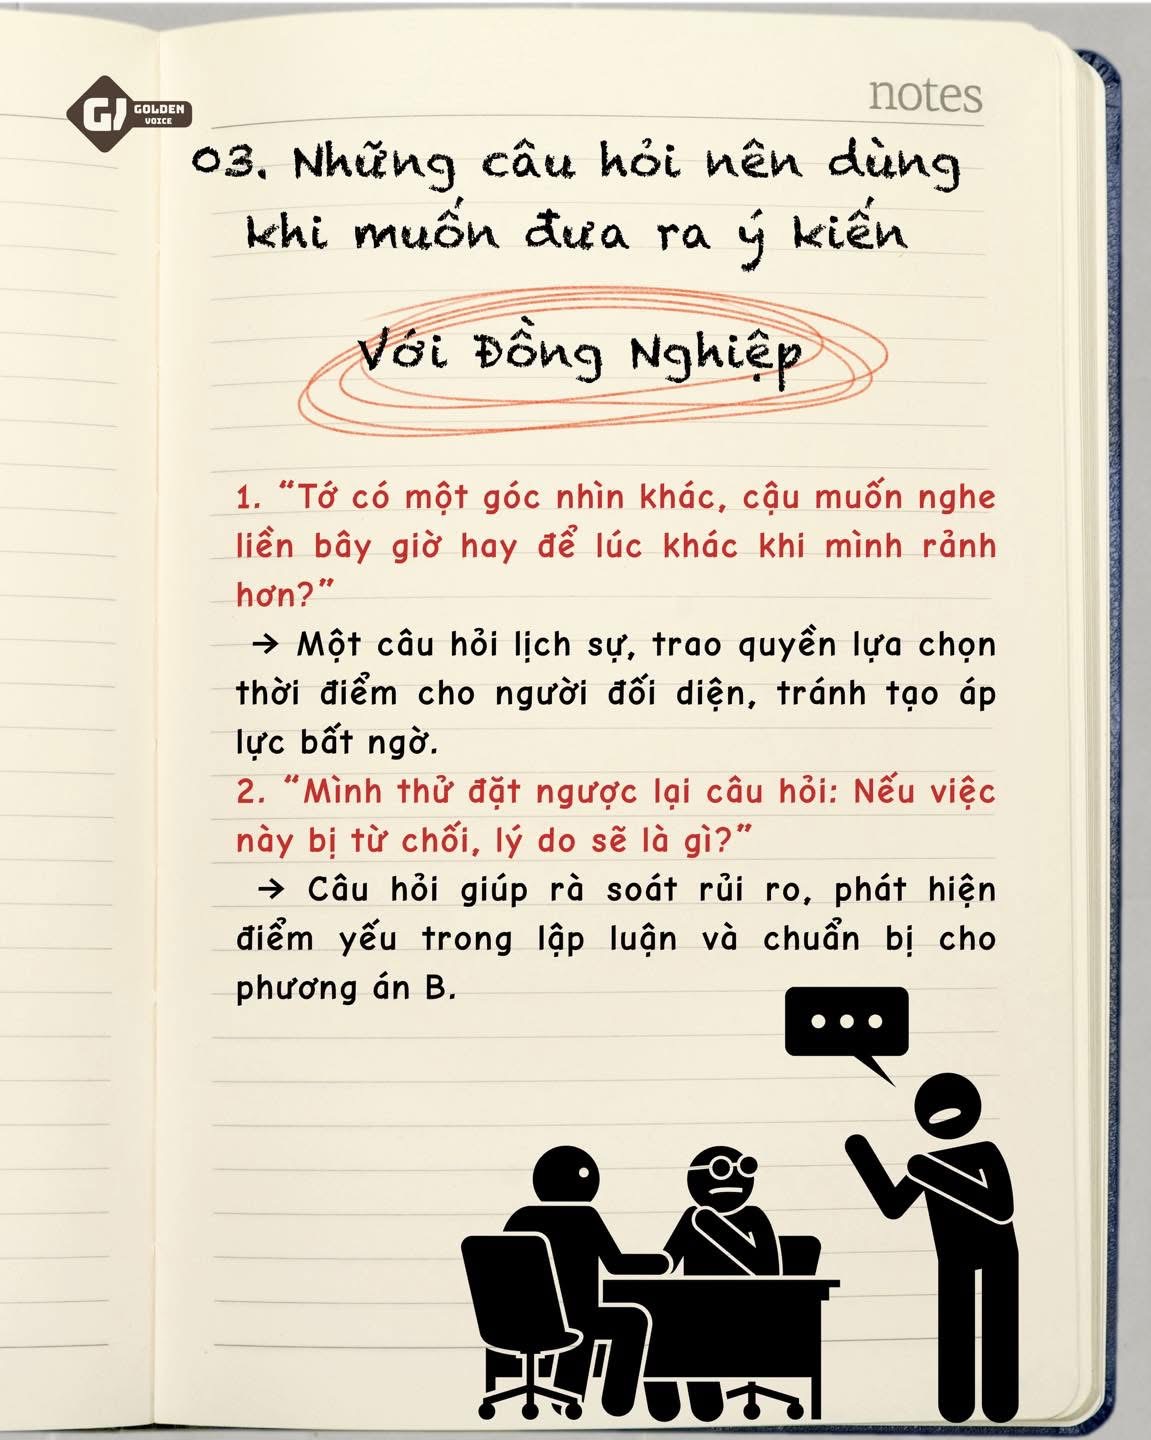 GOLDEN
VOICE
notes
03. Những câu hỏi nên dùng
khi muốn đưa ra ý kiến
Với Đồng Nghiệp
1. “Tớ có một góc nhìn khác, cậu muốn nghe
liền bây giờ hay để lúc khác khi mình rảnh
hơn?”
→ Một câu hỏi lịch sự, trao quyền lựa chọn
thời điểm cho người đối diện, tránh tạo áp
lực bất ngờ.
2. “Mình thử đặt ngược lại câu hỏi: Nếu việc
này bị từ chối, lý do sẽ là gì?”
→ Câu hỏi giúp rà soát rủi ro, phát hiện
điểm yếu trong lập luận và chuẩn bị cho
phương án B.